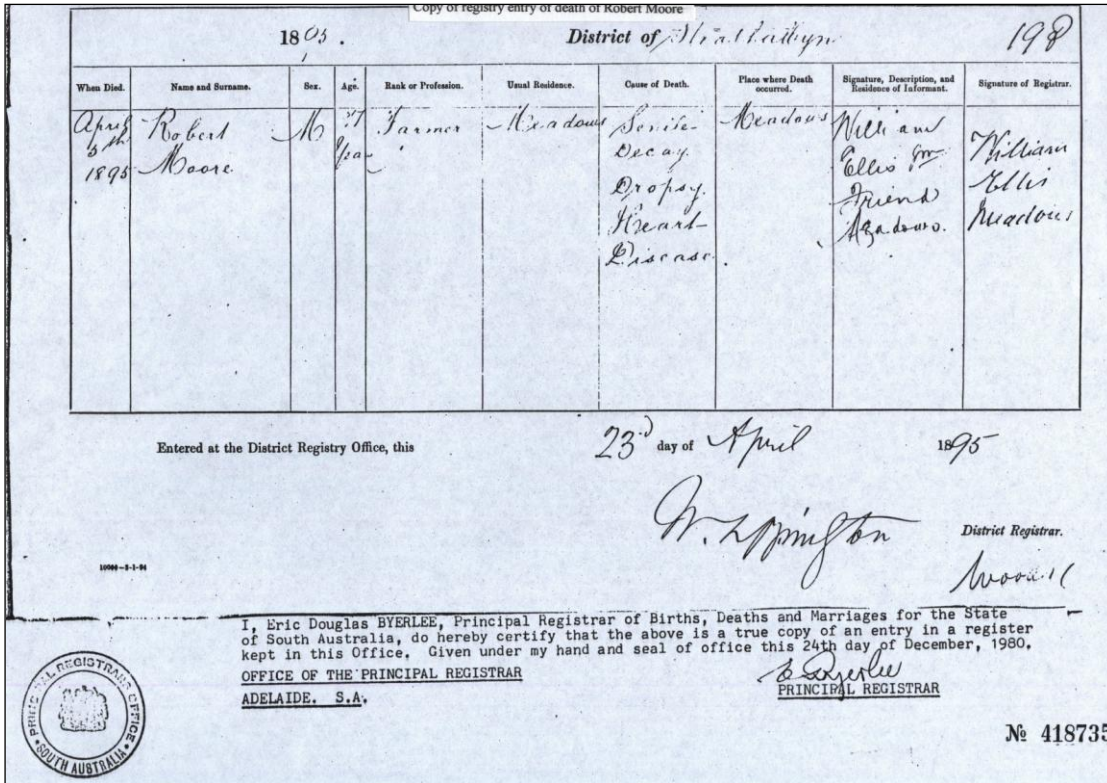 Copy of registry entry of death of Robert Moore
1895. District of Strathalbyn 198
When Died. Name and Surname. Sex. Age. Rank or Profession. Usual Residence. Cause of Death. Place where Death occurred. Signature, Description, and Residence of Informant. Signature of Registrar.
April Robert M Farmer Meadows Senile Meadows William
1895 Moore Decay Ellis William
Dropsy Friend Ellis
Heart Meadows. Meadows
Disease.
Entered at the District Registry Office, this 23d day of April 1895
District Registrar.
I, Eric Douglas BYERLEE, Principal Registrar of Births, Deaths and Marriages for the State
of South Australia, do hereby certify that the above is a true copy of an entry in a register
kept in this Office. Given under my hand and seal of office this 24th day of December, 1980.
OFFICE OF THE PRINCIPAL REGISTRAR
ADELAIDE. S.A.
E Byerlee
PRINCIPAL REGISTRAR
PRINCIPAL REGISTRARS OFFICE
SOUTH AUSTRALIA
No 418735